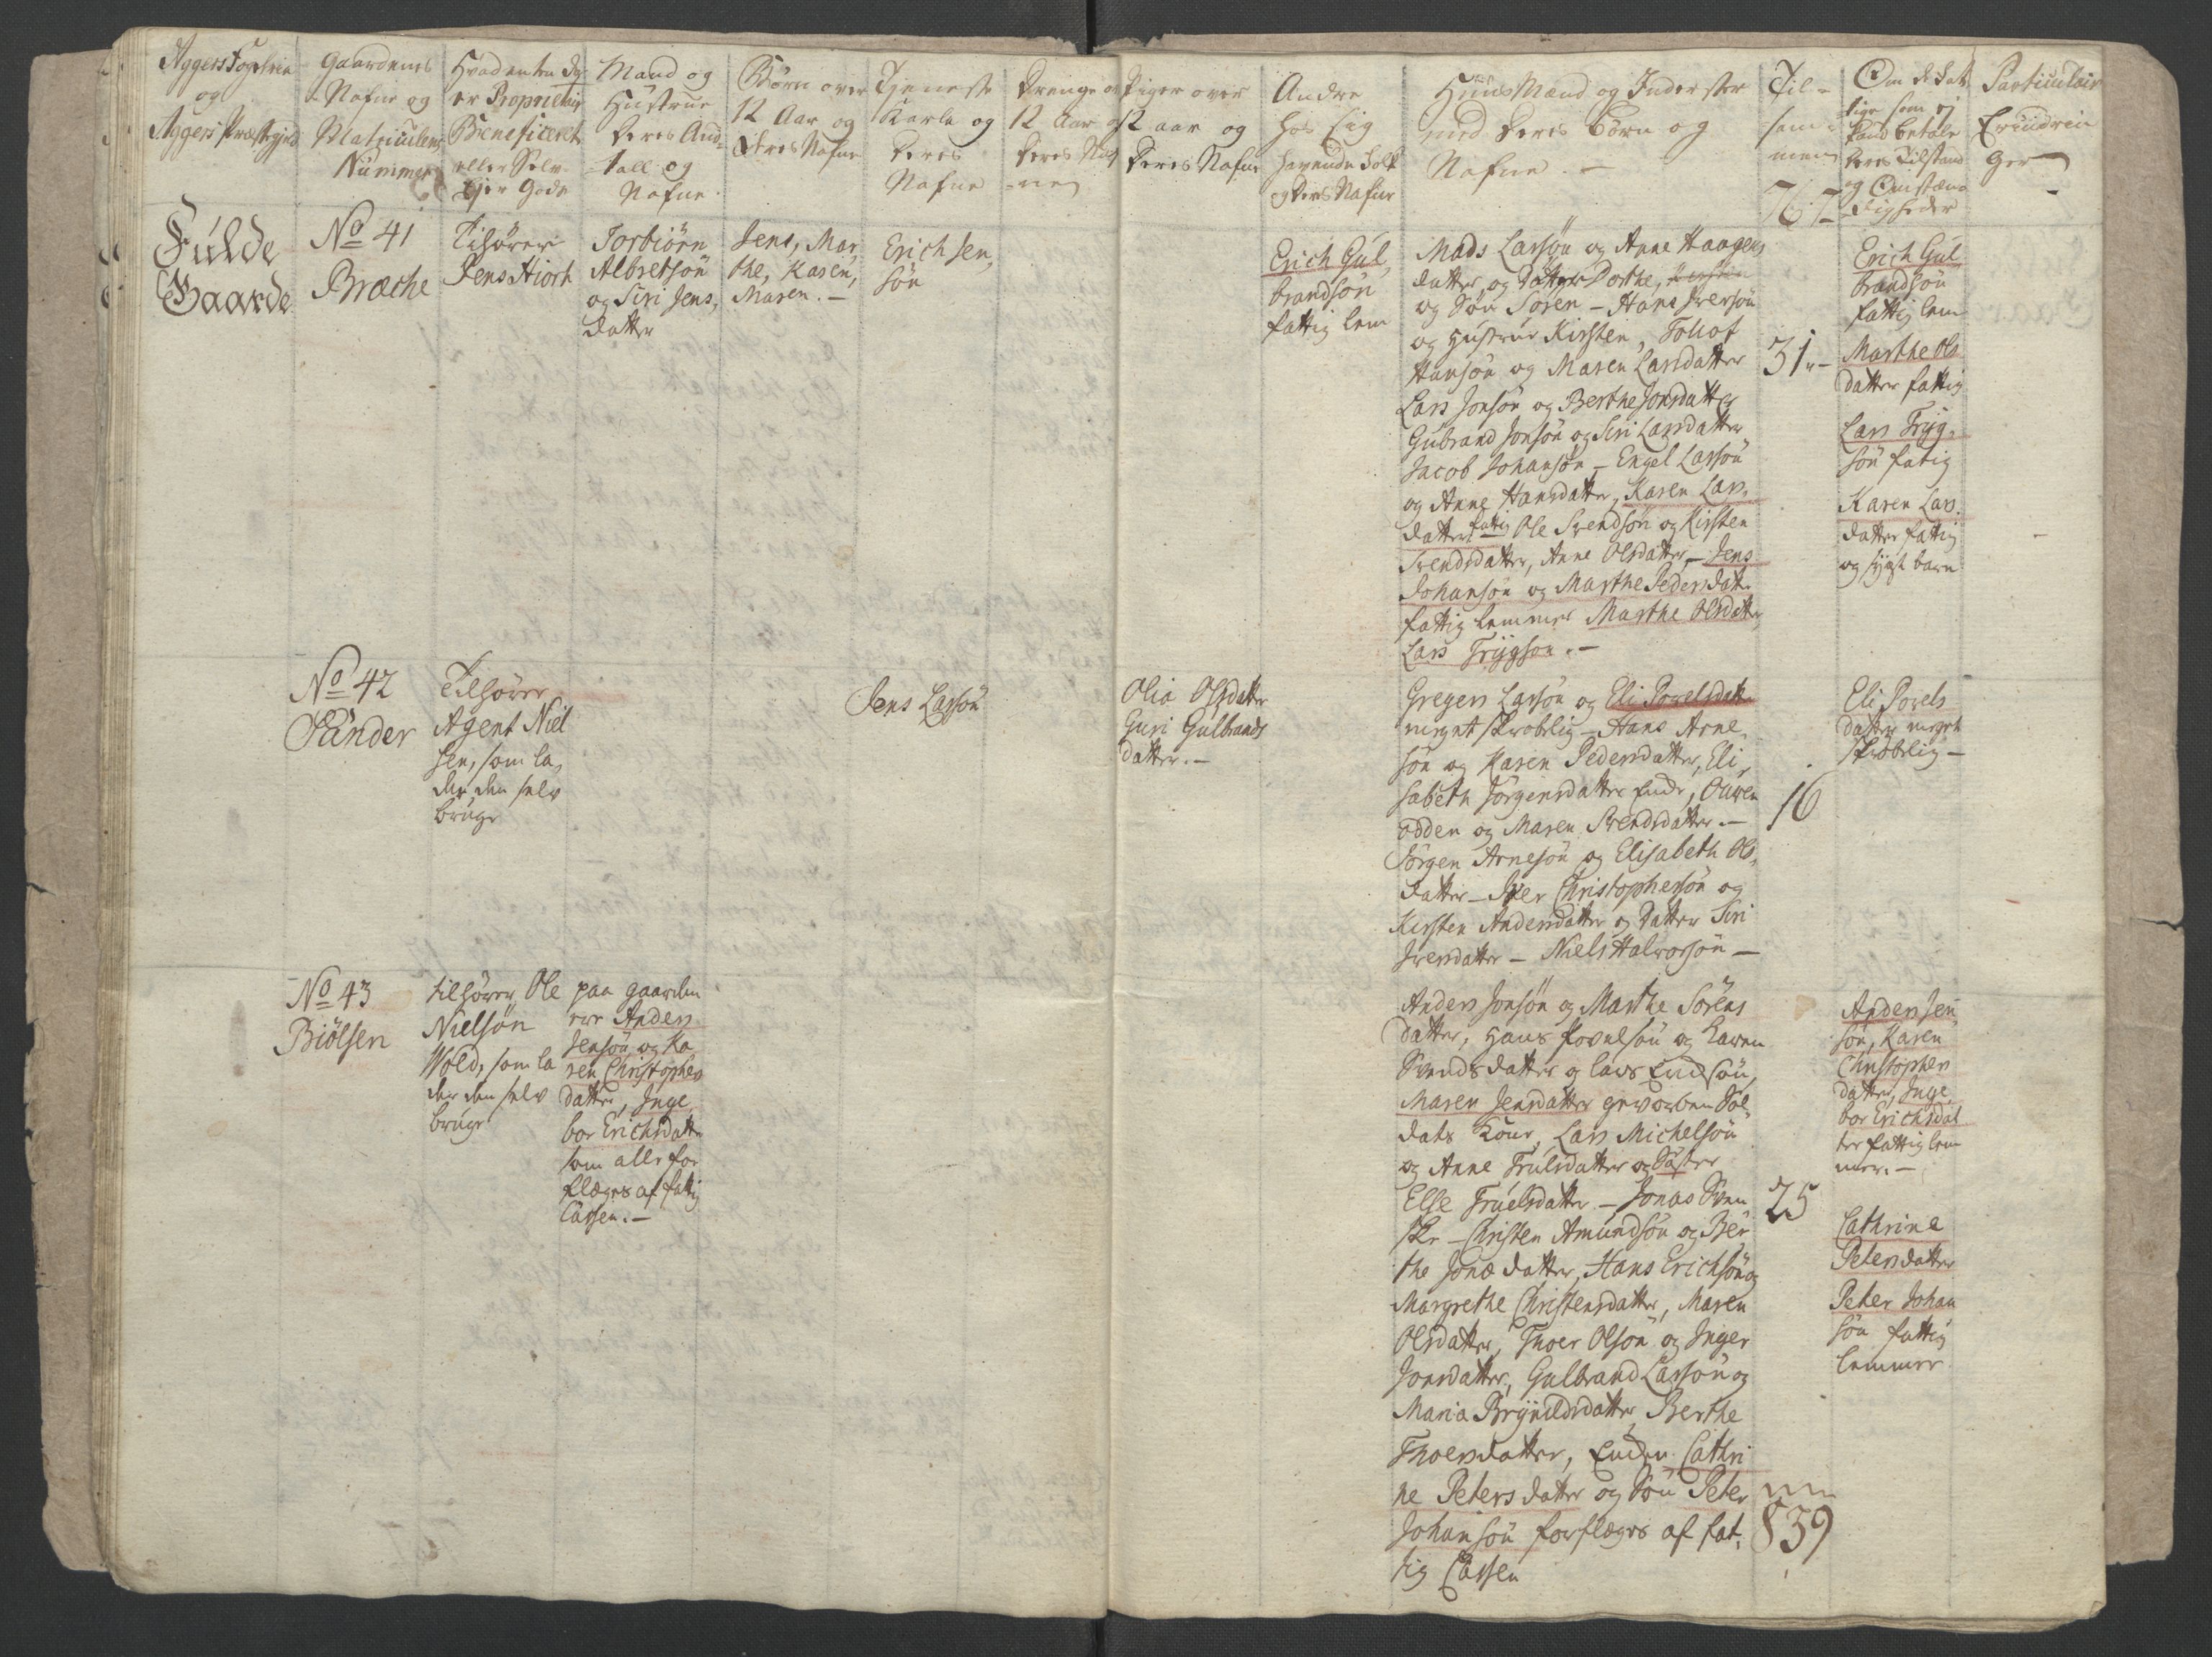 Aggers Fogderie
og
Aggers Præstegield
Gaardenes
Nafne og
Matriculens
Nummer
Hvad enten de
er Proprietair
Beneficeret
eller Selv
Ejer Gods
Mand og
Hustrue
Deres An-
tall og
Nafne.
Børn over
12 Aar og
Deres Nafne
Tieneste
Karle og
Deres
Nafne
Drenge o
12 Aar og
Deres Naf
ne
Piger over
12 aar og
Deres Nafne
Andre
hos Sig
havende Folk
og deres Nafne
Huus Mænd og Inderster
med deres Børn og
Nafne. -
Til-
sam-
men
767
Om de Fat
tige som ej
kand betale
deres Tilstand
og Omstæn
digheder
Particulair
Erindrin
ger
Fulde
Gaarde
No 41
Bræche
Tilhører
Jens Hiort
Torbiörn
Albretsön
og Siri Jens,
datter
Jens, Mar,
the, Karen,
Maren. -
Erich Jen,
sön
Erich Gul,
brandsön
fattig lem
Mads Larsön og Anne Haagens
datter og Datter Dorthe,
og Sön Sören - Hans Iversön
og Hustrue Kirsten, Tollof
Hansön og Maren Larsdatter
Lars Jonsön og Berthe Jonsdatter
Gubrand Jonsön og Siri Larsdatter
Jacob Johansön - Engel Larsön
og Anne Hansdatter, Karen Lars,
datter fattig Ole Svendsön og Kirsten
Svendsdatter, Anne Olsdatter, - Jens
Johansön og Marthe Pedersdatter
fattig lemmer Marthe Olsdatter,
Lars Trygson. -
31 -
Erich Gul
brandsön
fattig lem
Marthe Ols
datter fattig
Lars Tryg,
sön fatig
Karen Lars.
datter fattig
og sygt barn
No 42
Sander
Tilhører
Agent Niel
sen, som la,
der den selv
bruge
Jens Larsön
Olia Olsdatter
Guri Gulbrands
datter. -
Gregers Larsön og Eli Povelsdatter
meget skrøbelig - Hans Arne,
sön og Karen Pedersdatter, Eli,
sabeth Jörgensdatter Enke, Ouven
Odden og Maren Svendsdatter. -
Jörgen Arnesön og Elisabeth Ols,
datter - Iver Christophersön og
Kirsten Andersdatter og Datter Siri
Iversdatter - Niels Halvorsön -
16
Eli Povels
datter meget
skrøbelig -
No 43
Biölsen
tilhører Ole
Nielsön
Wold, som la
der den selv
bruge
paa gaarden
ere Anders
Jensön og Ka
ren Christophers
datter, Inge
bor Erichsdatter
som alle for
flæges af fattig
Cassen. -
Anders Jonsön og Marthe Sörens
datter, Hans Povelsön og Karen
Svends datter og Lars
Maren Jensdatter geworben Sol
dats Kone, Lars Michelsön
og Anne Trulsdatter og Søster
Else Truelsdatter - Jonas Sven
ske - Christen Amundsön og Ber
the Jonædatter, Hans Erichsön og
Margrethe Christensdatter, Maren
Olsdatter, Thoer Olson og Inger
Jonsdatter, Gulbrand Larsön og
Maria Brynildsdatter, Berthe
Thoersdatter, Enken Cathri
ne Petersdatter og Sön Peter
Johansön forflæges af fat,
tig Cassen
25
839
Anders Jen
sön, Karen
Christophers
datter, Inge
bor Erichsdat
ter fattig lem
mer. -
Cathrine
Petersdatter
Peter Johan
sön fattig
lemmer